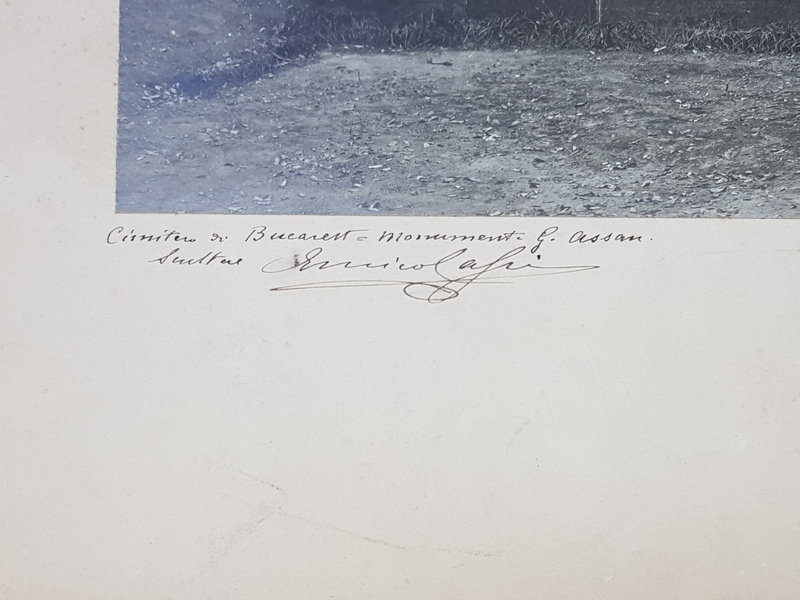 Cimitero di Bucarest = Monument. G. Assan.
Scultore Enrico Cassi